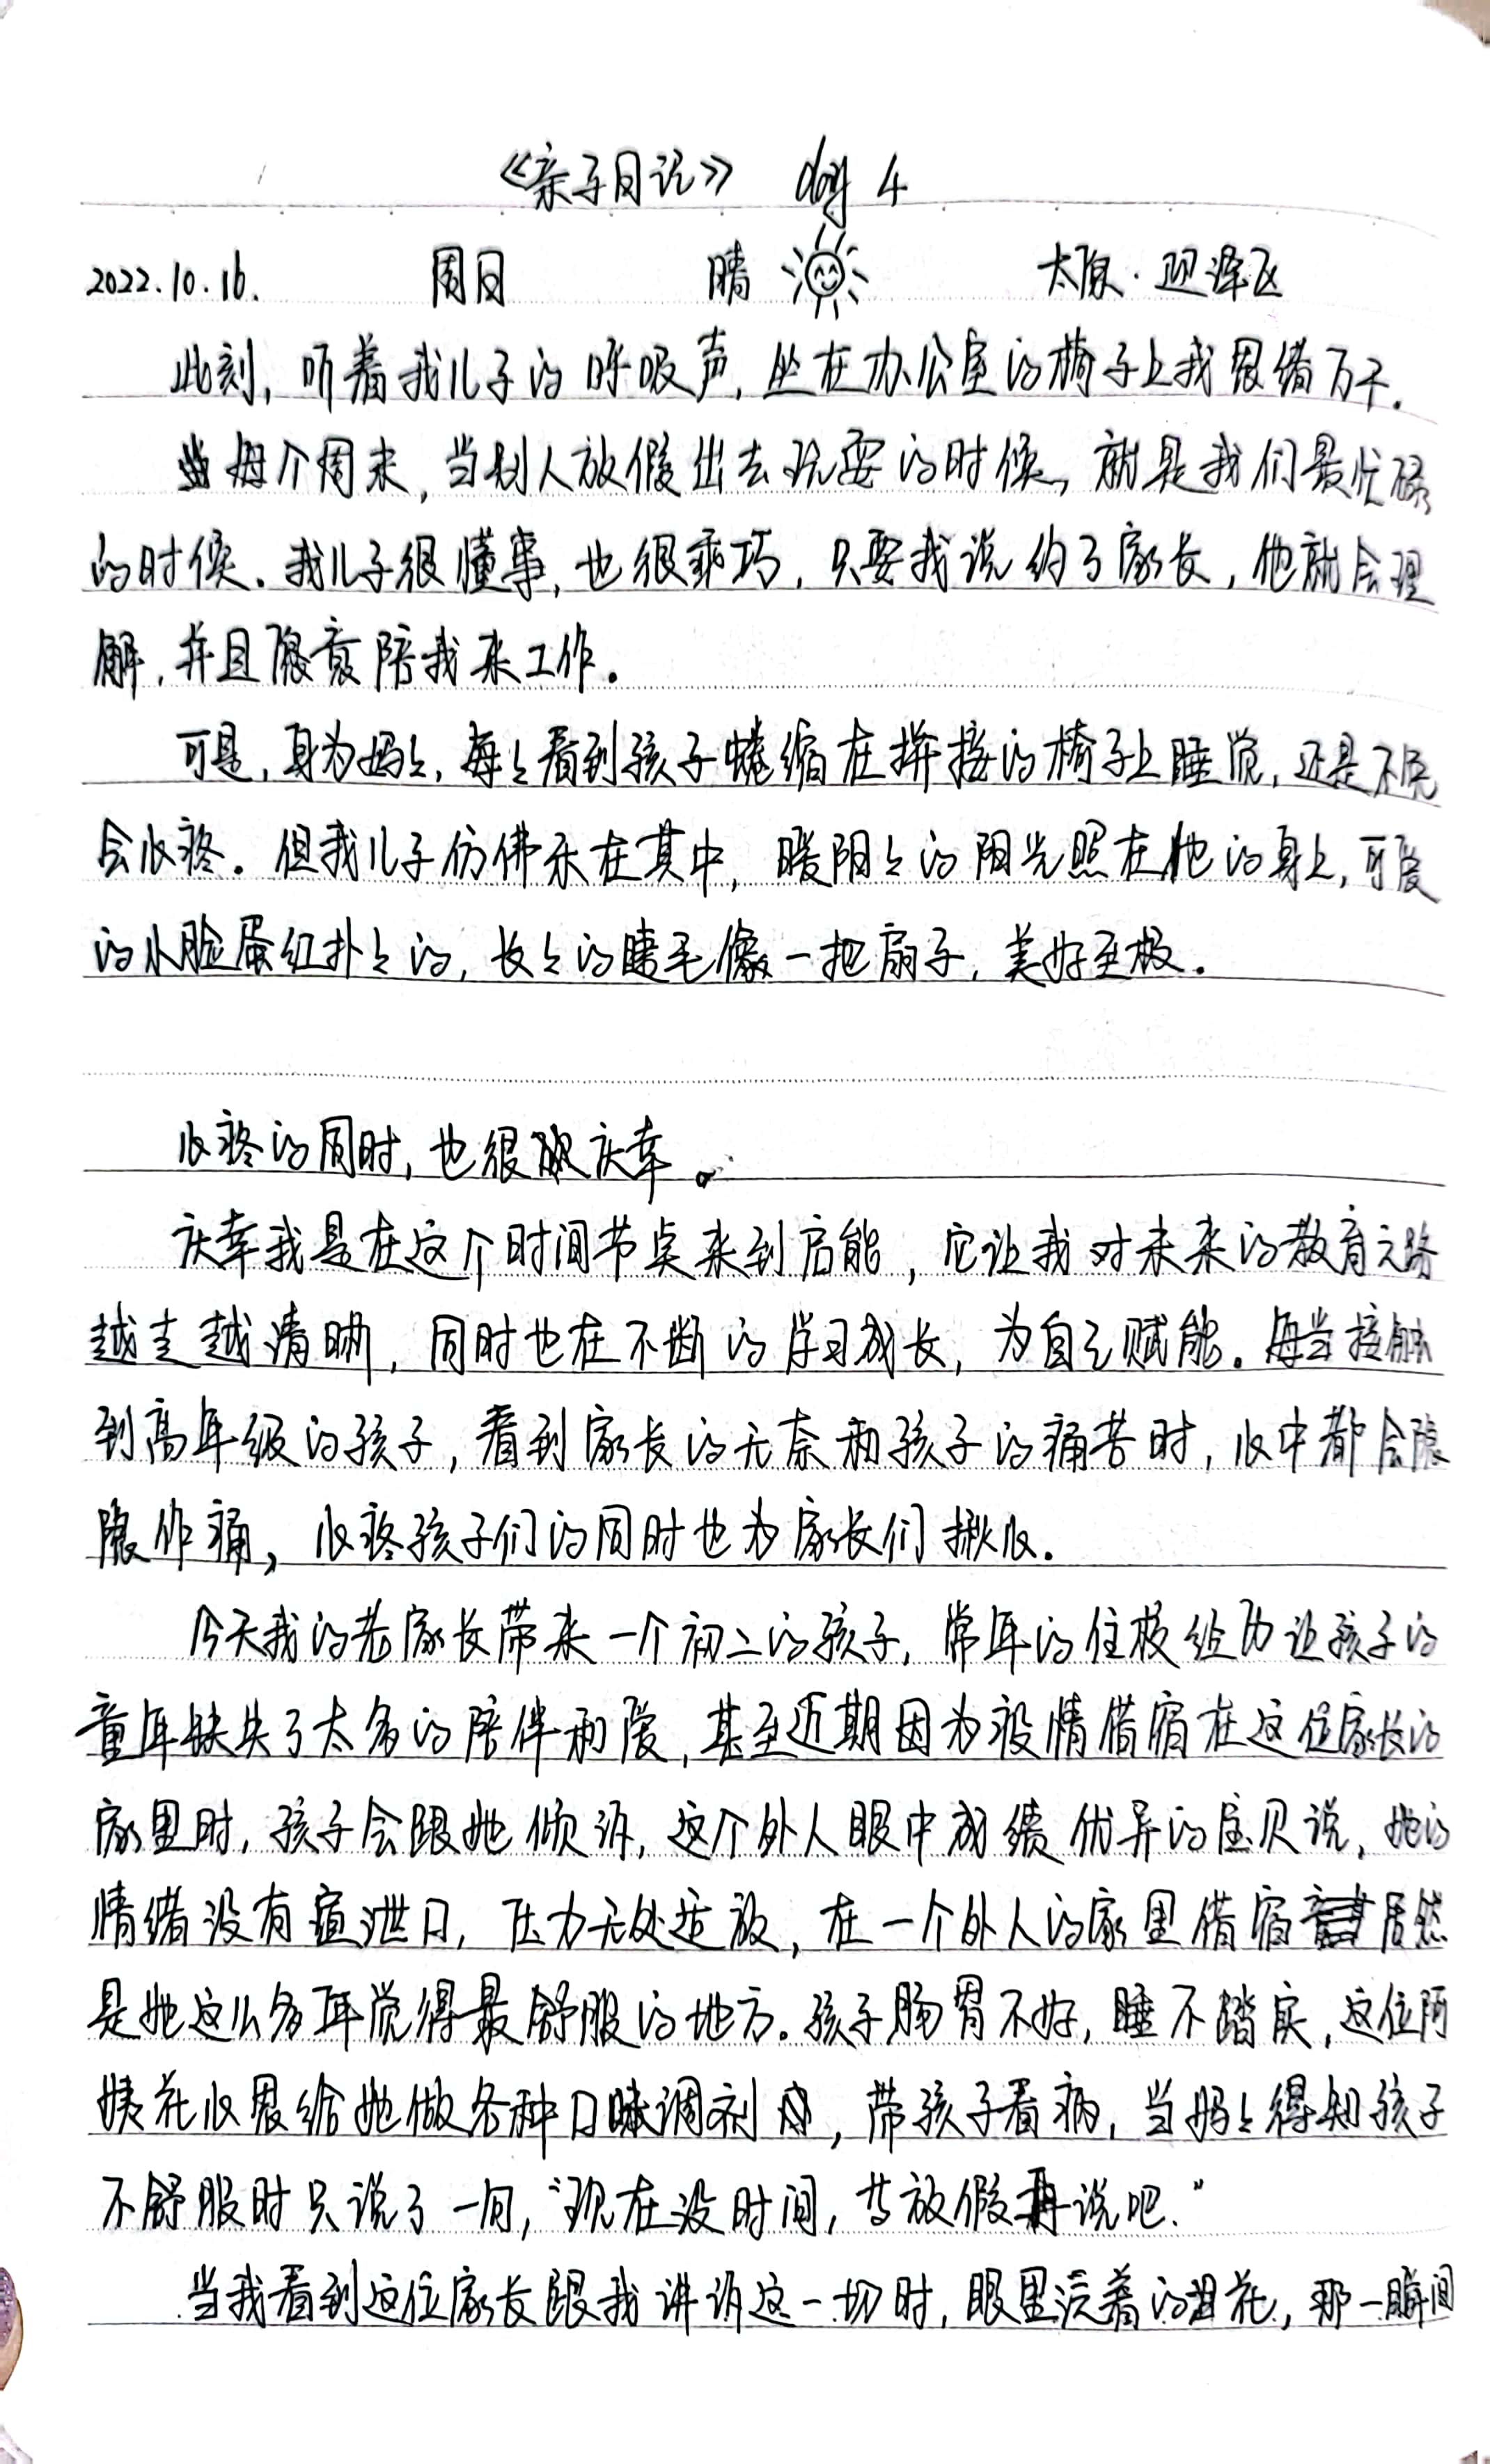 《亲子日记》 day 4
2022.10.16. 周日 晴 太原·迎泽区
此刻，听着我儿子的呼吸声，坐在办公室的椅子上我思绪万千。
每个周末，当别人放假出去玩耍的时候，就是我们最忙碌
的时候。我儿子很懂事，也很乖巧，只要我说约了家长，他就会理
解，并且愿意陪我来工作。
可是，身为妈々，每々看到孩子蜷缩在拼接的椅子上睡觉，还是不免
会心疼。但我儿子仿佛乐在其中，暖阳々的阳光照在他的身上，可爱
的小脸蛋红扑々的，长々的睫毛像一把扇子，美好至极。
心疼的同时，也很庆幸。
庆幸我是在这个时间节点来到启能，它让我对未来的教育之路
越走越清晰，同时也在不断的学习成长，为自己赋能。每当接触
到高年级的孩子，看到家长的无奈和孩子的痛苦时，心中都会隐
隐作痛，心疼孩子们的同时也为家长们揪心。
今天我的老家长带来一个初二的孩子，常年的住校经历让孩子的
童年缺失了太多的陪伴和爱，甚至近期因为疫情借宿在这位家长的
家里时，孩子会跟她倾诉，这个外人眼中成绩优异的宝贝说，她的
情绪没有宣泄口，压力无处适放，在一个外人的家里借宿居然
是她这么多年觉得最舒服的地方。孩子肠胃不好，睡不踏实，这位阿
姨花心思给她做各种口味调剂，带孩子看病，当妈々得知孩子
不舒服时只说了一句，“现在没时间，等放假再说吧.”
当我看到这位家长跟我讲诉这一切时，眼里泛着的泪花，那一瞬间